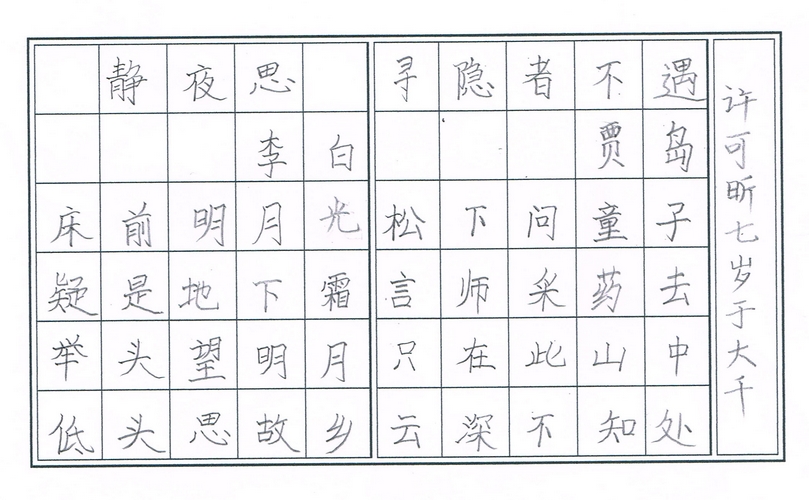 静夜思
李白
床前明月光
疑是地下霜
举头望明月
低头思故乡
寻隐者不遇
贾岛
松下问童子
言师采药去
只在此山中
云深不知处
许可昕七岁于大千